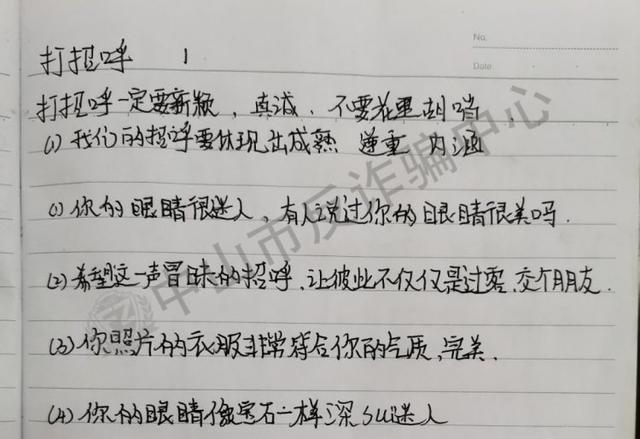 No.
Date
打招呼 1
打招呼一定要新颖，真诚、不要花里胡哨．
(1) 我们的招呼要体现出成熟 稳重 内涵
(1) 你的眼睛很迷人，有人说过你的眼睛很美吗．
(2) 希望这一声冒昧的招呼，让彼此不仅仅是过客，交个朋友．
(3) 你照片的衣服非常符合你的气质，完美．
(4) 你的眼睛像宝石一样深 迷人
中山市反诈骗中心